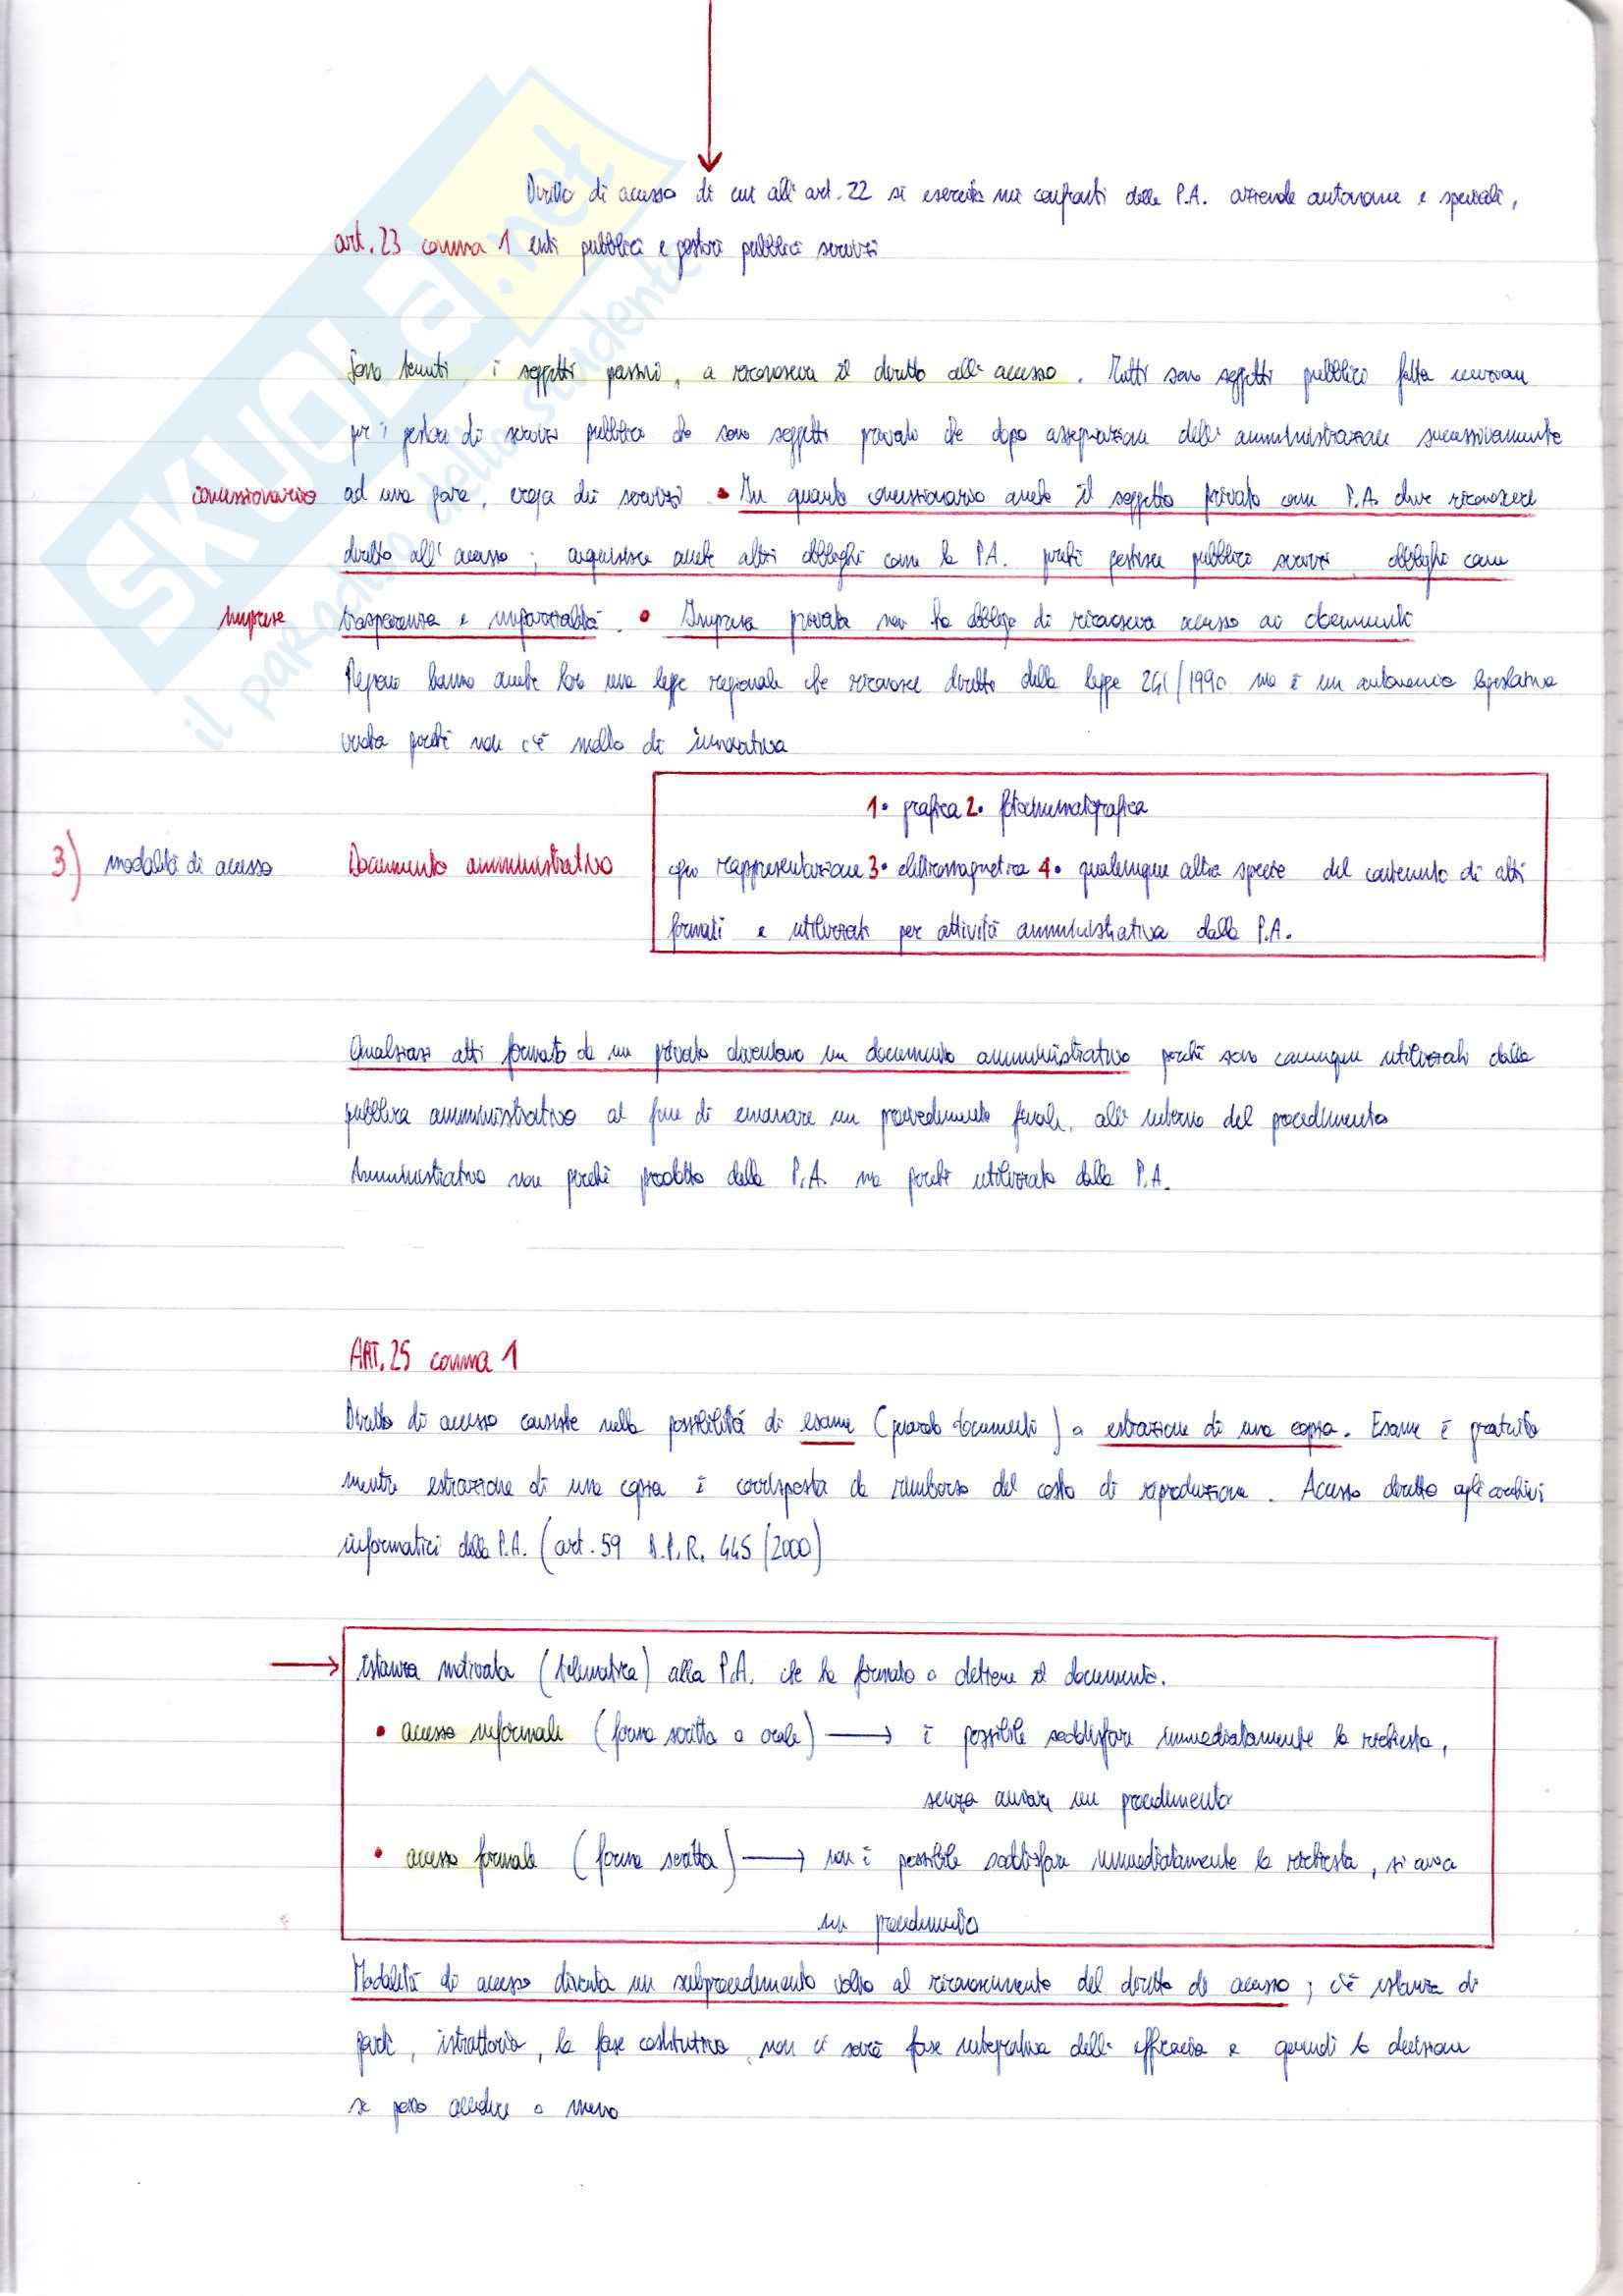 Diritto di accesso di cui all'art. 22 si esercita nei confronti delle P.A. aziende autonome e speciali,
art. 23 comma 1 enti pubblici e gestori pubblici servizi
Sono tenuti, i soggetti passivi, a riconoscere il diritto all'accesso. Tutti sono soggetti pubblici fatta eccezione
per i gestori di servizi pubblici che sono soggetti privati che dopo assegnazione dell'amministrazione successivamente
concessionario ad una gara, eroga dei servizi • In quanto concessionario anche il soggetto privato come P.A. deve riconoscere
diritto all'accesso; acquisisce anche altri obblighi come la P.A. perché gestisce pubblici servizi, obblighi come
imprese trasparenza e imparzialità. • Impresa privata non ha obbligo di riconoscere accesso ai documenti
Regioni hanno anche loro una legge regionale che riconosce diritto della legge 241/1990 ma è un autonomia legislativa
vuota perché non c'è nulla di innovativa
1• grafica 2• fotocinematografica
3) modalità di accesso Documento amministrativo ogni rappresentazione 3• elettromagnetica 4• qualunque altra specie del contenuto di atti
formati e utilizzati per attività amministrativa dalla P.A.
Qualsiasi atti formato da un privato diventano un documento amministrativo perché sono comunque utilizzati dalla
pubblica amministrativo al fine di emanare un provvedimento finale, all'interno del procedimento
Amministrativo non perché prodotto dalla P.A. ma perché utilizzato dalla P.A.
ART. 25 comma 1
Diritto di accesso consiste nella possibilità di esame (guardo documenti) o estrazione di una copia. Esame è gratuito
mentre estrazione di una copia è corrisposta da rimborso del costo di riproduzione. Accesso diretto agli archivi
informatici della P.A. (art. 59 D.P.R. 445/2000)
→ istanza motivata (telematica) alla P.A. che ha formato o detiene il documento.
• accesso informale (forma scritta o orale) → è possibile soddisfare immediatamente la richiesta,
senza avviare un procedimento
• accesso formale (forma scritta) → non è possibile soddisfare immediatamente la richiesta, si avvia
un procedimento
Modalità di accesso diventa un subprocedimento volto al riconoscimento del diritto di accesso; c'è istanza di
parte, istruttoria, la fase costitutiva, non ci sarà fase integrativa dell'efficacia e quindi la decisione
se posso accedere o meno
SKUOLA.net
il paradiso dello studente